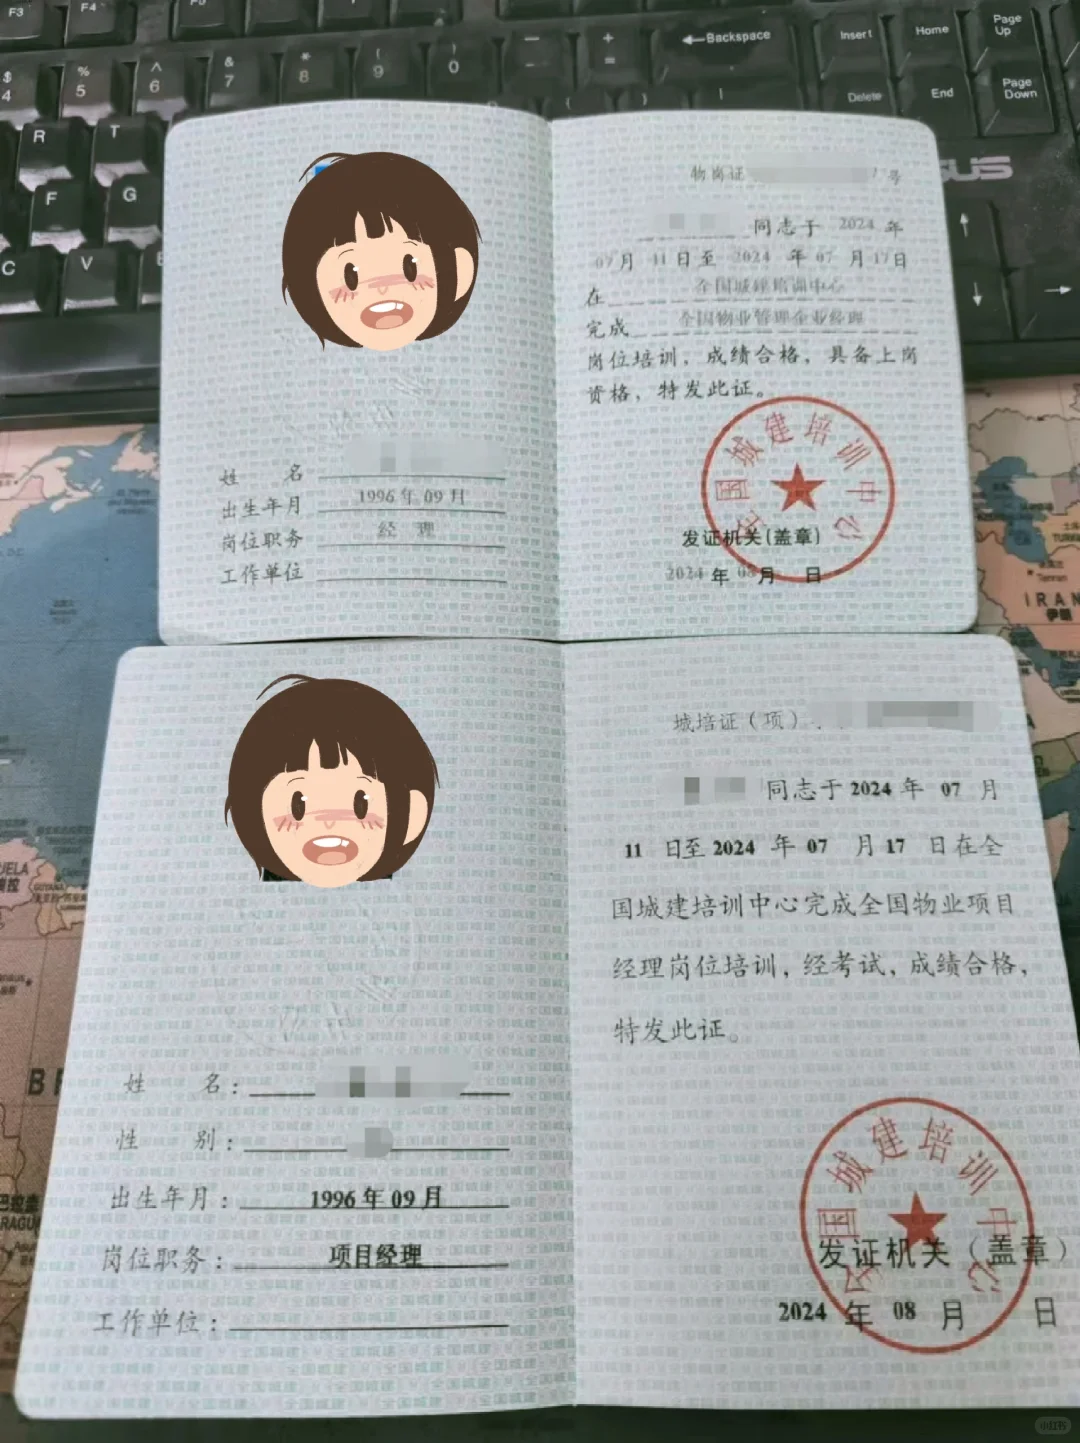 F3
F4
F5
$
4
%
5
^
6
&
7
*
8
(
9
)
0
+
=
←Backspace
Insert
Home
Page
Up
Delete
End
Page
Down
R
T
F
G
C
V
SUS
物岗证 号
同志于 2024 年
07月 11日至 2024 年 07 月 17日
在 全国城建培训中心
完成 全国物业管理企业经理
岗位培训，成绩合格，具备上岗
资格，特发此证。
全国城建培训中心
发证机关(盖章)
2024 年 08月 日
姓 名
出生年月 1996 年 09 月
岗位职务 经 理
工作单位
IRAN
伊朗
城培证（项）
同志于 2024 年 07 月
11 日至 2024 年 07 月 17 日在全
国城建培训中心完成全国物业项目
经理岗位培训，经考试，成绩合格，
特发此证。
全国城建培训中心
发证机关（盖章）
2024 年 08 月 日
姓 名：
性 别：
出生年月：1996 年 09 月
岗位职务：项目经理
工作单位：
小红书